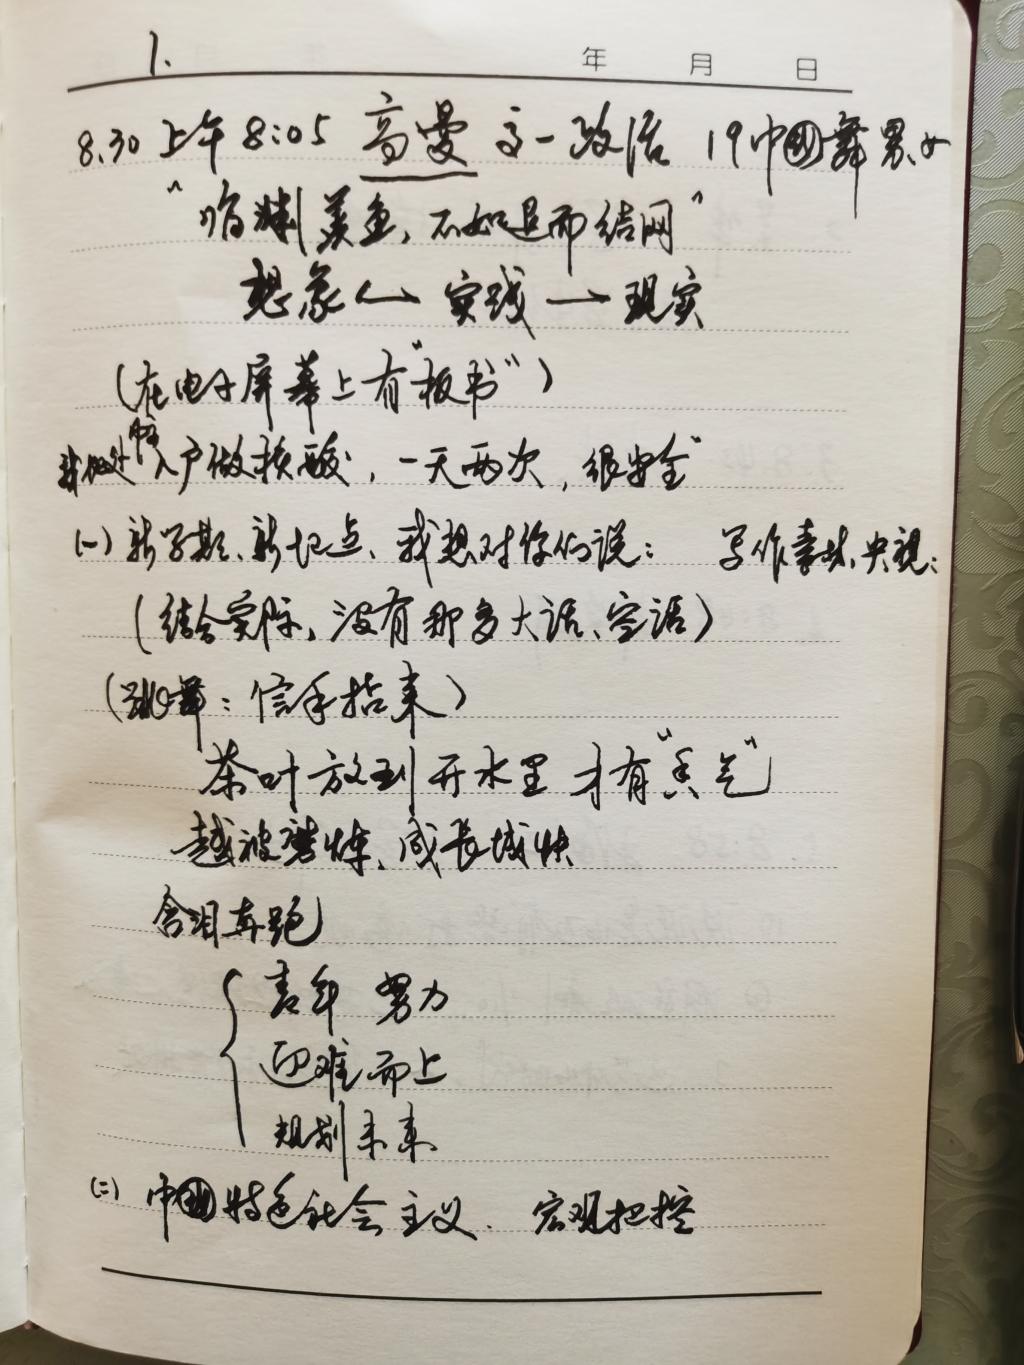 1.
年 月 日
8.30 上午 8:05 高曼 高一政治 19中国舞男、女
"临渊羡鱼,不如退而结网"
想象 ← 实践 → 现实
(在电子屏幕上有"板书")
入户做核酸,一天两次,很安全"
(一)新学期、新起点、我想对你们说: 写作素材、央视:
(结合实际,没有那多大话、空话)
(跳舞:信手拈来)
茶叶放到开水里才有"香气"
越被磨炼、成长越快
含泪奔跑
青年 努力
迎难而上
规划未来
(二)中国特色社会主义. 宏观把控